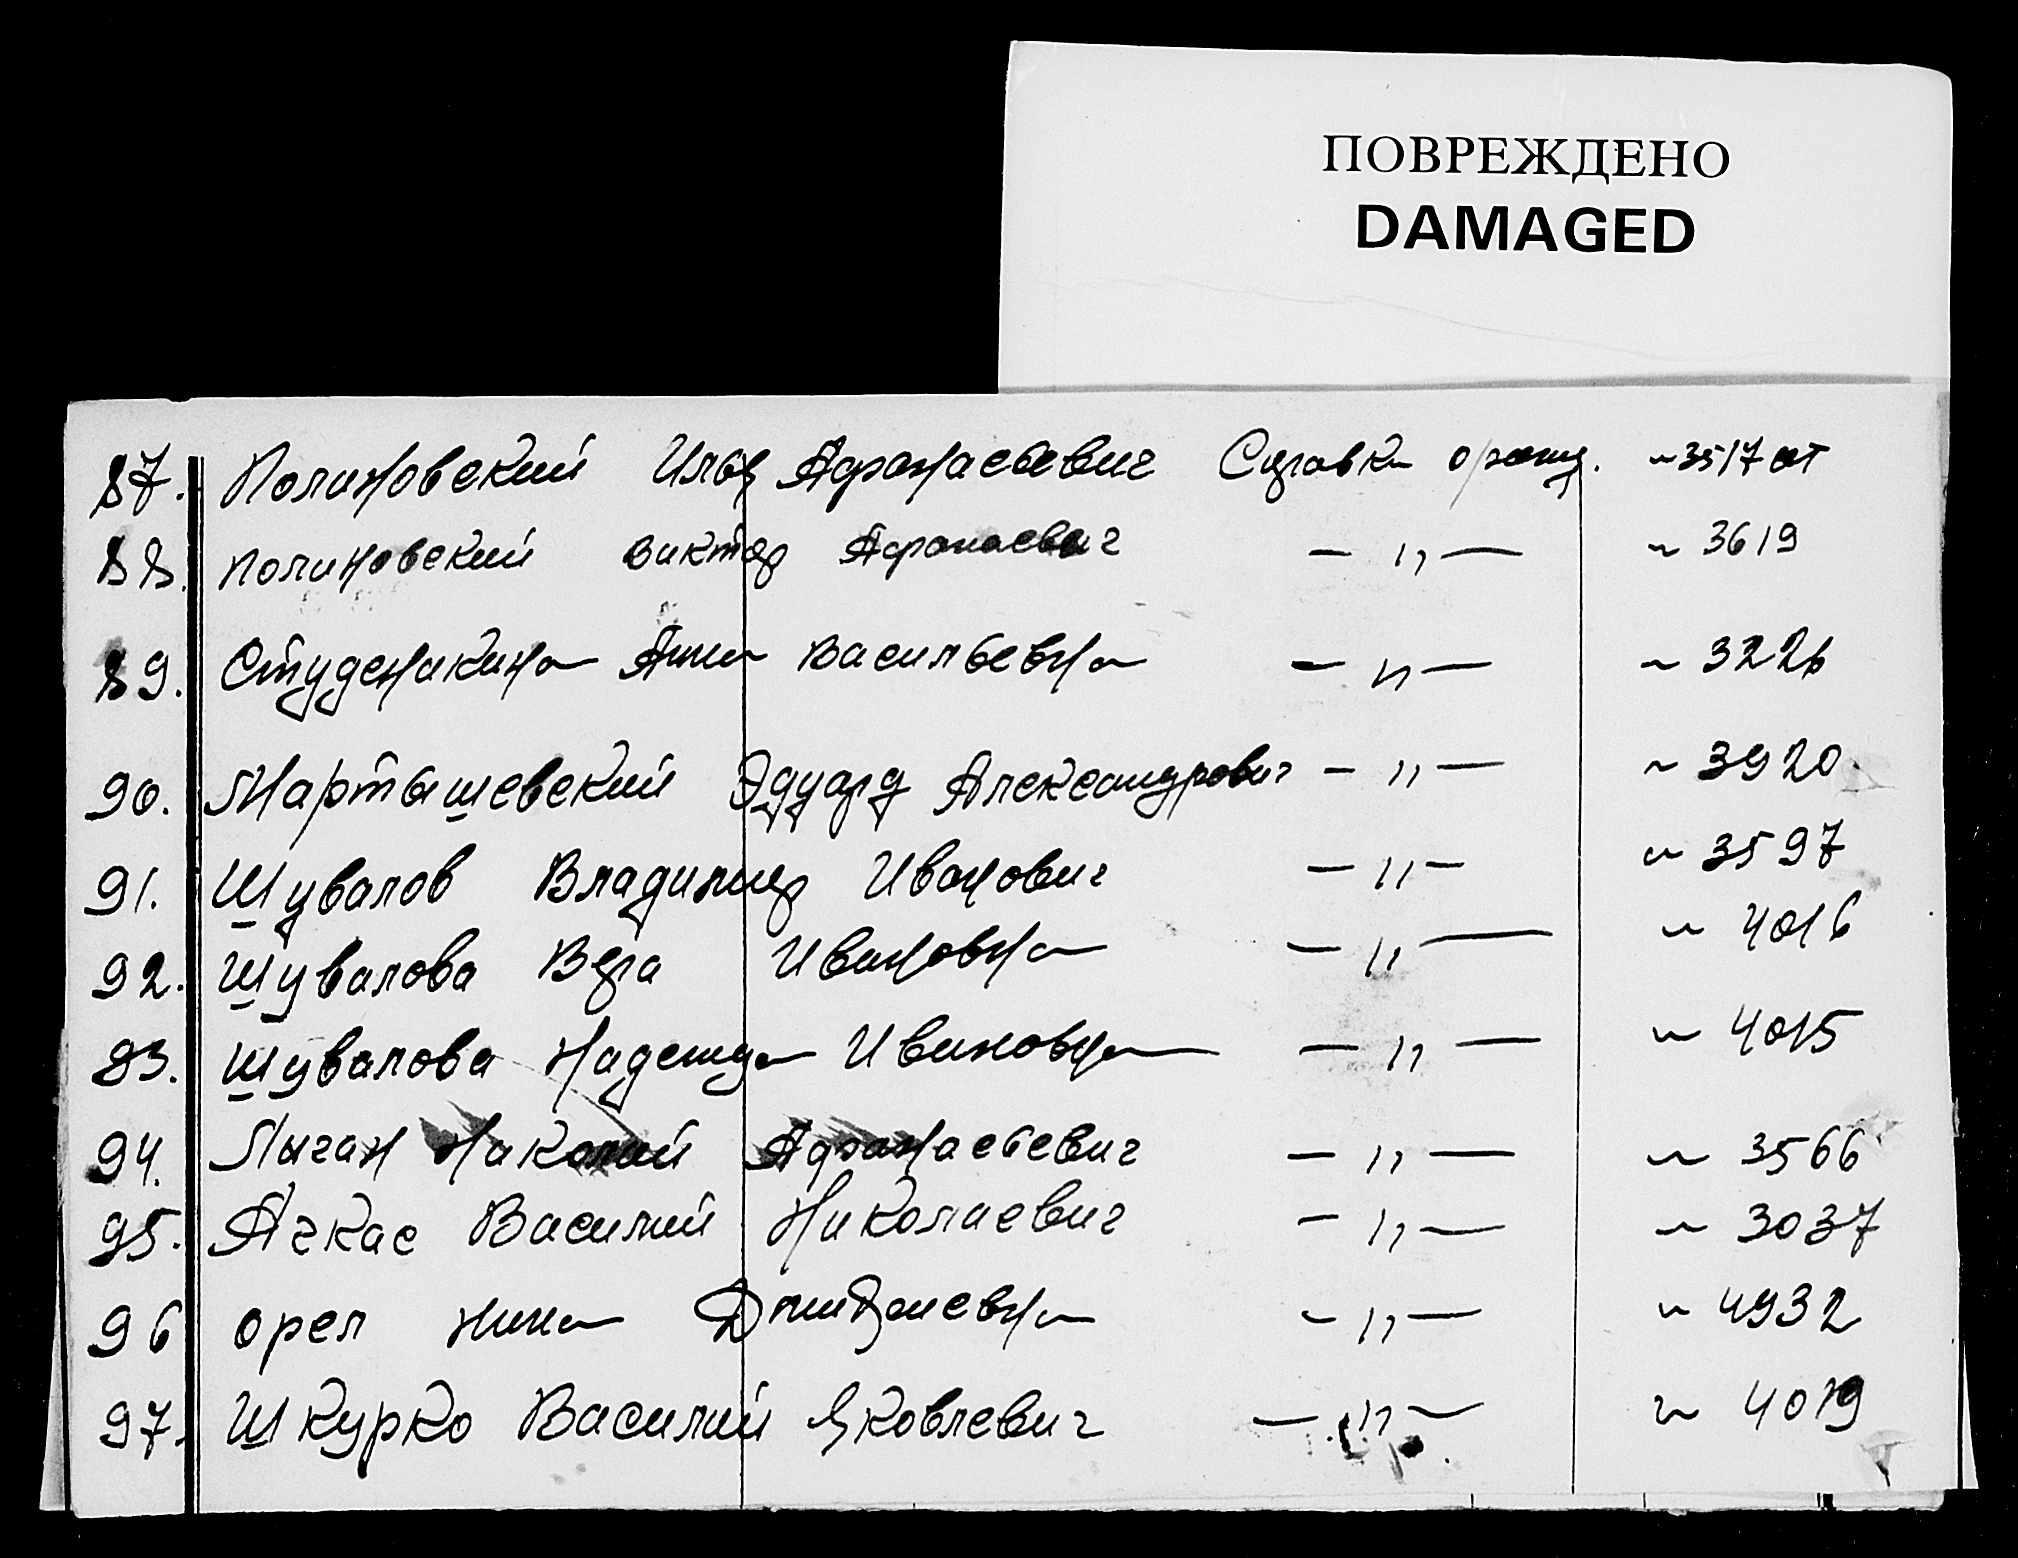 ПОВРЕЖДЕНО
DAMAGED
87. Полиновский Илья Афонасьевич Справка о рожд. ~ 3517 от
88. Полиновский Виктор Афонасевич — " — ~ 3619
89. Студеникина Анна Васильевна — " — ~ 322
90. Мартышевский Эдуард Александрович — " — ~ 3920.
91. Шувалов Владимир Иванович — " — ~ 3597
92. Шувалова Вера Ивановна — " — ~ 4016
93. Шувалова Надежда Ивановна — " — ~ 4015
94. Лыган Николай Афонасьевич — " — ~ 3566
95. Ачкас Василий Николаевич — " — ~ 3037
96 Орел Нина Дмитриевна — " — ~ 4932
97. Шкурко Василий Яковлевич — " — ~ 4019